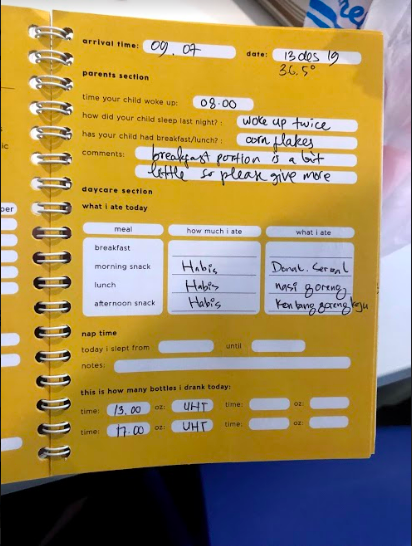 arrival time: 09.07 date: 13 des 19
36.5°
parents section
time your child woke up: 08.00
how did your child sleep last night?: woke up twice
has your child had breakfast/lunch?: corn flakes
comments: breakfast portion is a bit
little so please give more
daycare section
what i ate today
meal how much i ate what i ate
breakfast
morning snack Habis Donat.
lunch Habis nasi goreng
afternoon snack Habis Kentang goreng keju
nap time
today i slept from until
notes:
this is how many bottles i drank today:
time: 13.00 oz: UHT time: oz:
time: 17.00 oz: UHT time: oz: